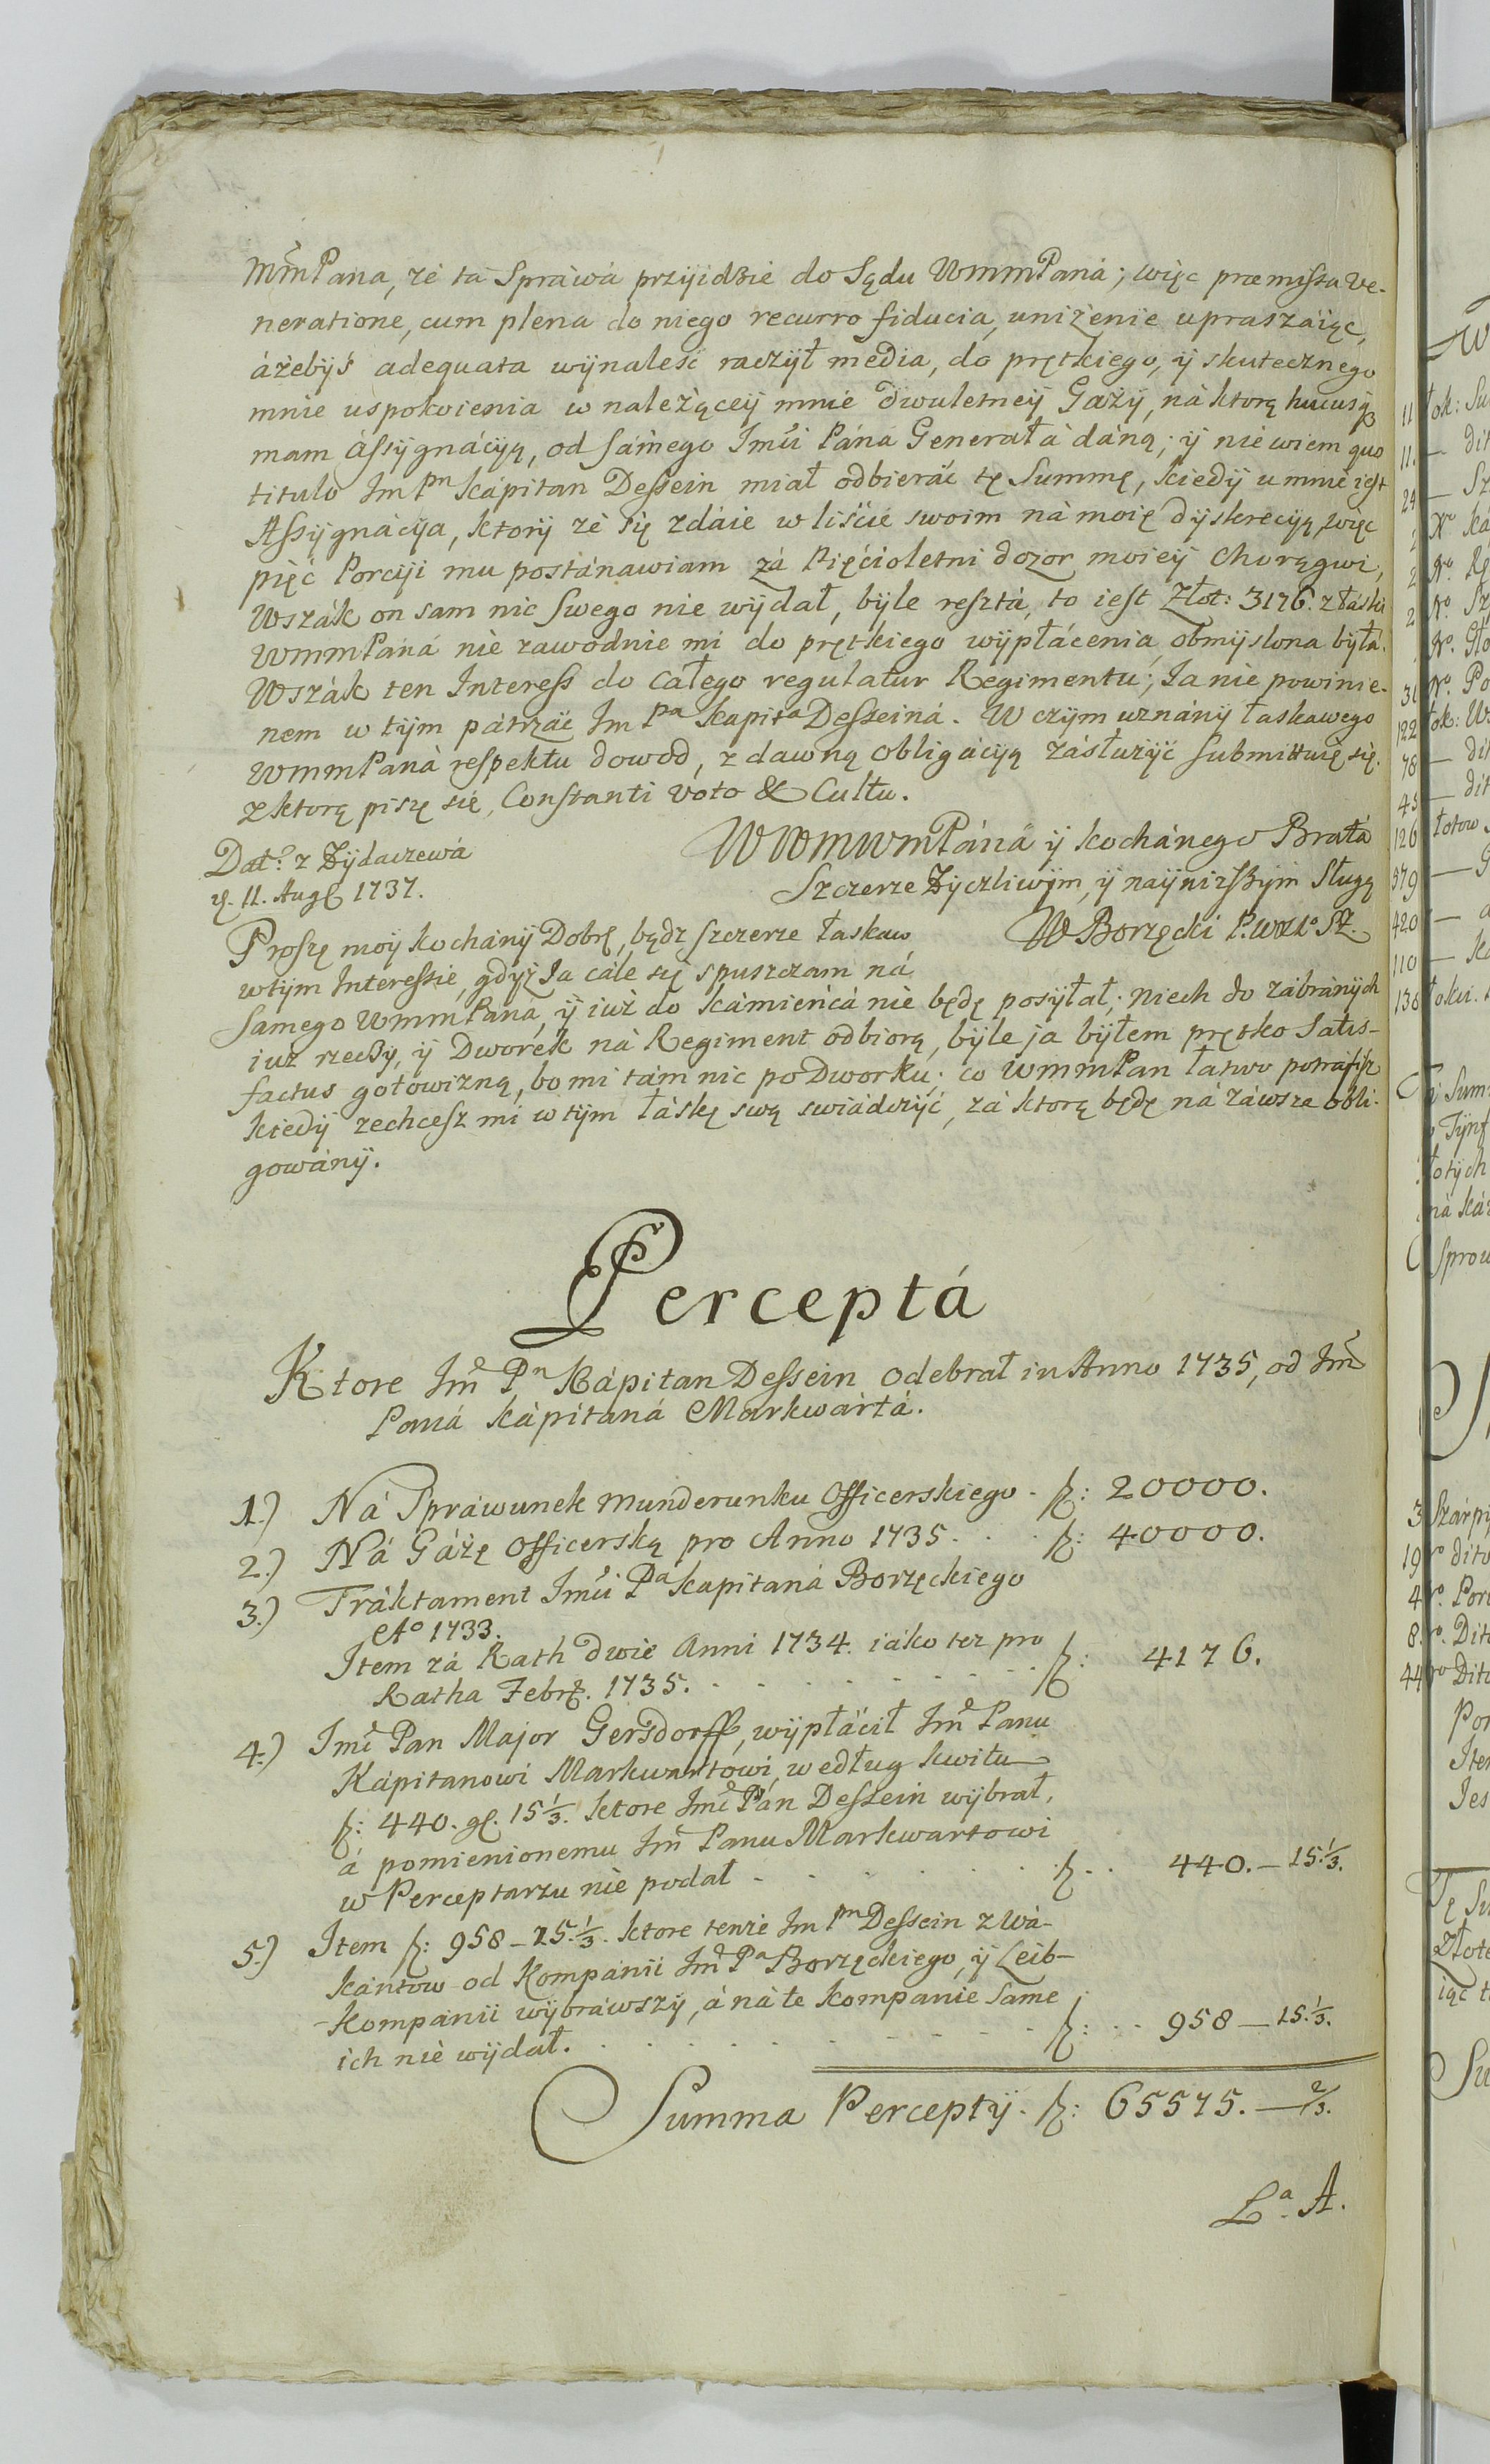 MMPana, że ta Spráwá przÿidźie do Sądu WmmPaná; więc præmissa Ve-
neratione, cum plena do niego recurro fiducia, uniżenie upraszáiąc,
áżebÿś adequata wÿnaleść raczÿł media, do prętkiego, ÿ skutecznego
mnie uspokoienia w należącey mnie dwuletneÿ Gażÿ, ná ktorą hucusq
mam Assÿgnácÿą, od Sámego Imći Páná Generałá dáną; ÿ nie wiem quo
titulo Im Pn Kápitan Dessein miał odbieráć tę Summę, kiedÿ u mnie iest
Assÿgnácÿa, ktorÿ że się zdáie w liśćie swoim ná moię dÿskrecÿą, więc
pięć Porcÿi mu postánawiam zá Pięćioletni dozor moieÿ Chorągwi,
Wszák on sam nic swego nie wÿdał, bÿle resztá, to iest Złot: 3176. z łáski
WmmPáná nie zawodnie mi do prętkiego wÿpłácenia, obmÿslona bÿłá.
Wszák ten Interess do całego regulatur Regimentu; Ia nie powinie-
nem w tÿm pátrzáć Im Pa Kapita Desseiná. W czÿm uznánÿ łaskawego
WmmPaná respektu dowod, z dawną obligácÿą zásłużÿć submittuię się.
z ktorą piszę się, Constanti voto & Cultu.
WWMWmPáná ÿ kochánego Bratá
Dat: z Żÿdaczewá
d. 11. Aug 1737.
Szczerze Żÿczliwÿm, ÿ naÿniższÿm Sługą
W Borzęcki
Proszę moÿ kochánÿ Dobrę, będz szczerze łaskaw
w tÿm Interessie, gdÿż Ia cále się spuszczam ná
Samego WmmPana, ÿ iuż do Kámieńcá nie będę posÿłał; niech do zábránÿch
iuż rzeczÿ, ÿ Dworek ná Regiment odbiorą, bÿle ja bÿłem prętko Satis-
factus gotowizną, bo mi tám nic po Dworku; co WmmPan łatwo potrafisz
kiedÿ zechcesz mi w tÿm łáskę swą swiádczÿć, zá ktorą będę ná záwsze obli-
gowánÿ.
Perceptá
Ktore Im Pn Kápitan Dessein odebrał in Anno 1735, od Im
Paná Kápitaná Markwártá.
1.) Ná Spráwunek munderunku Officerskiego - f: 20000.
2.) Ná Gáżę Officerską pro Anno 1735. f: 40000.
3.) Tráktament Imći Pa Kapitaná Borzęckiego
Ao 1733.
Item zá Rath dwie Anni 1734. iáko tez pro
Ratha Febr. 1735. f: 4176.
4.) Imć Pan Major Gersdorff, wÿpłáćił Im Panu
Kápitanowi Markwartowi, według kwitu
f: 440. gl. 15 1/3. ktore Imć Pán Dessein wÿbrał,
á pomienionemu Im Panu Markwartowi
w Perceptarzu nie podał - f. 440.-15 1/3.
5.) Item f: 958-15 1/3. ktore tenże Im Pn Dessein z Wá-
kántow od Kompánii Im Pa Borzęckiego, ÿ Leib-
-Kompánii wÿbráwszÿ, á ná te Kompanie same
ich nie wÿdał. f: 958-15 1/3.
Summa Perceptÿ. f: 65575.-2/3.
La A.